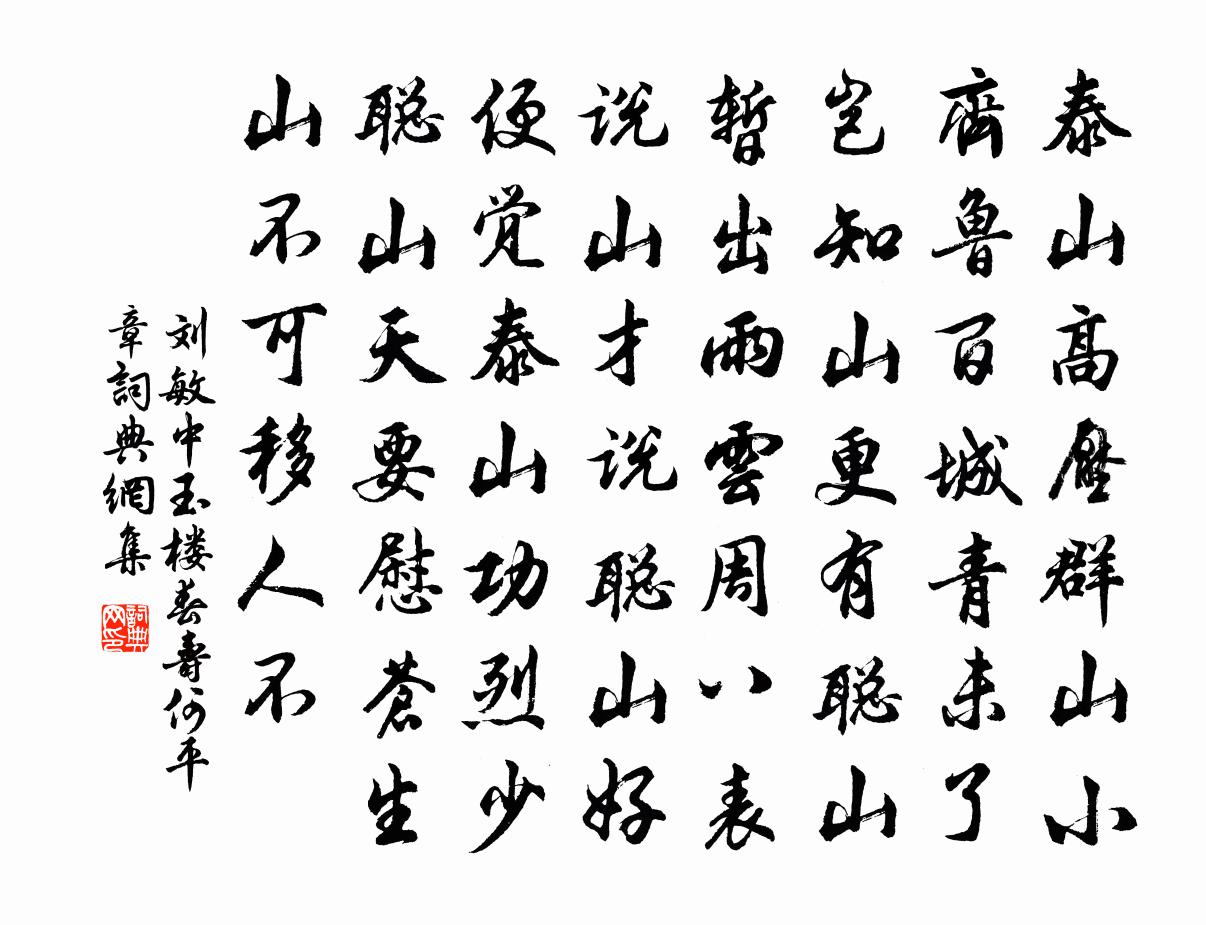 泰山高壓群山小
齊魯百城青未了
岂知山更有聪山
暫出雨雲周八表
说山才说聪山好
便觉泰山功烈少
聪山天要慰蒼生
山不可移人不
刘敏中玉楼春壽何平
章詞典網集
詞典网印